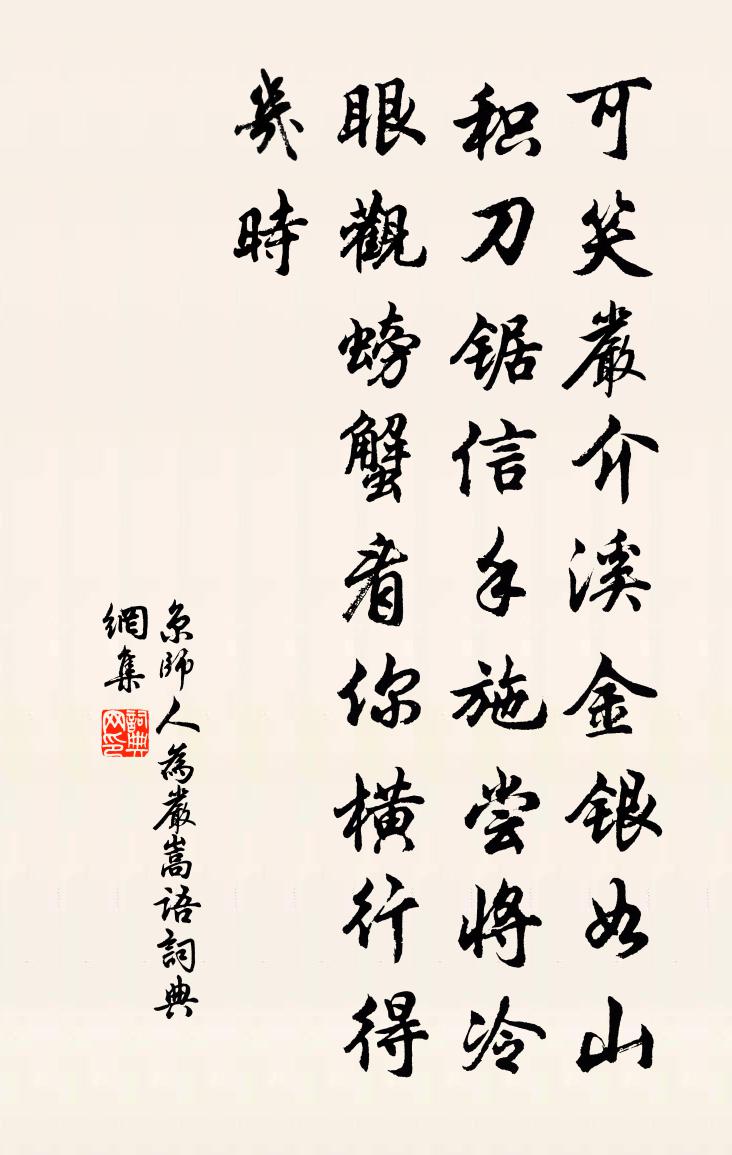 可笑嚴介溪金銀如山
积刀锯信手施尝將冷
眼觀螃蟹看你横行得
幾時
京師人為嚴嵩语詞典
網集
詞典
网印